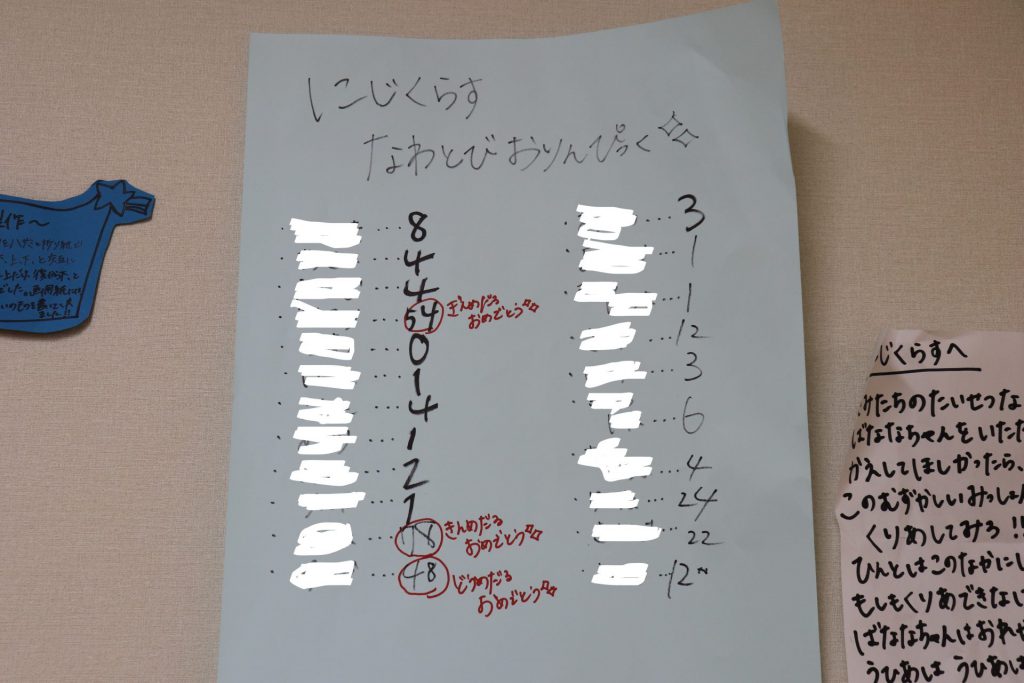 にじくらす
なわとびおりんぴっく
8
4
4
54 ぎんめだる
おめでとう
0
1
4
1
2
1
78 きんめだる
おめでとう
48 どうめだる
おめでとう
3
1
1
12
3
6
4
24
22
12
作〜
じくらすへ
みたちのたいせつな
ばななちゃんをいただ
かえしてほしかったら、
このむずかしいみっしょん
くりあしてみろ!!
ひんとはこのなかにし
もしもくりあできない
ばななちゃんはおれ
うひあは うひあは